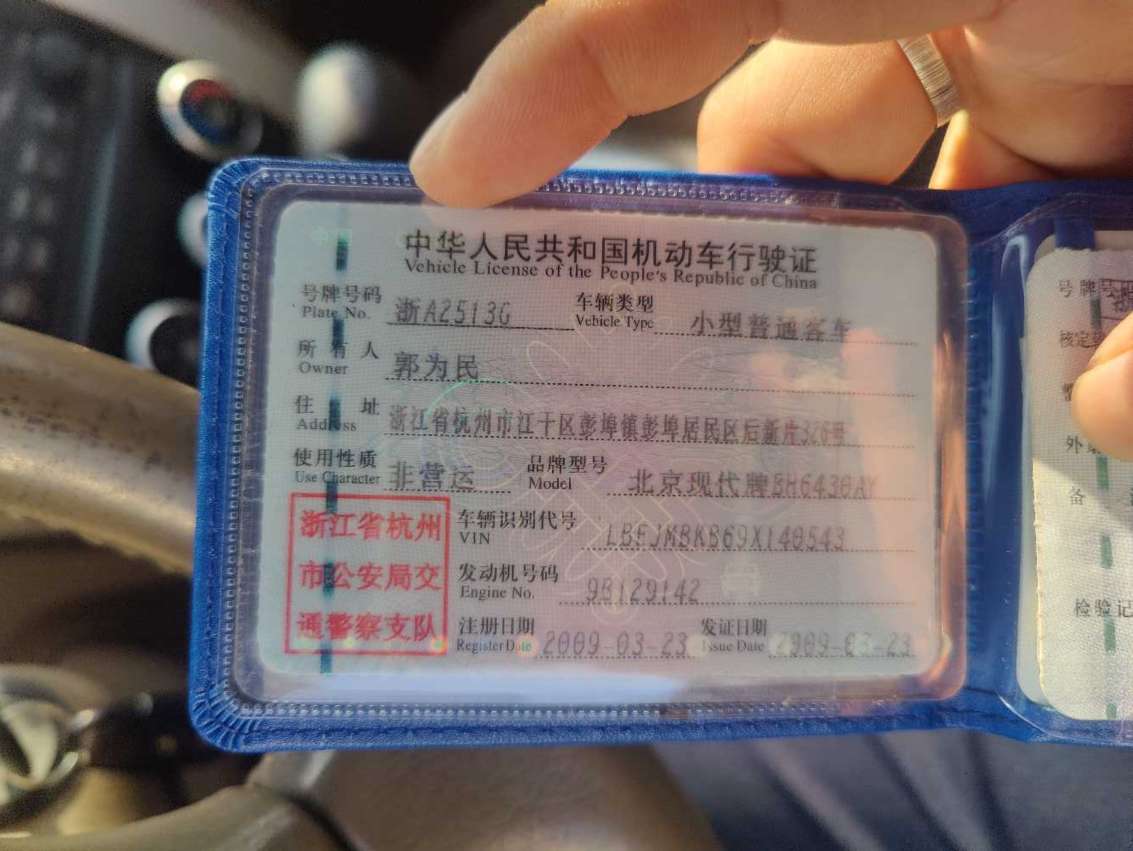 中华人民共和国机动车行驶证
Vehicle License of the People's Republic of China
号牌号码 浙A2513G 车辆类型 小型普通客车
Plate No. Vehicle Type
所有人 郭为民
Owner
住址 浙江省杭州市江干区彭埠镇彭埠居民区后新片326号
Address
使用性质 非营运 品牌型号 北京现代牌BH6430AY
Use Character Model
浙江省杭州
市公安局交
通警察支队
车辆识别代号 LBEJMBKB69X140543
VIN
发动机号码 9B129142
Engine No.
注册日期 2009-03-23 发证日期 2009-03-23
Register Date Issue Date
号牌
核定
外
备
检验记